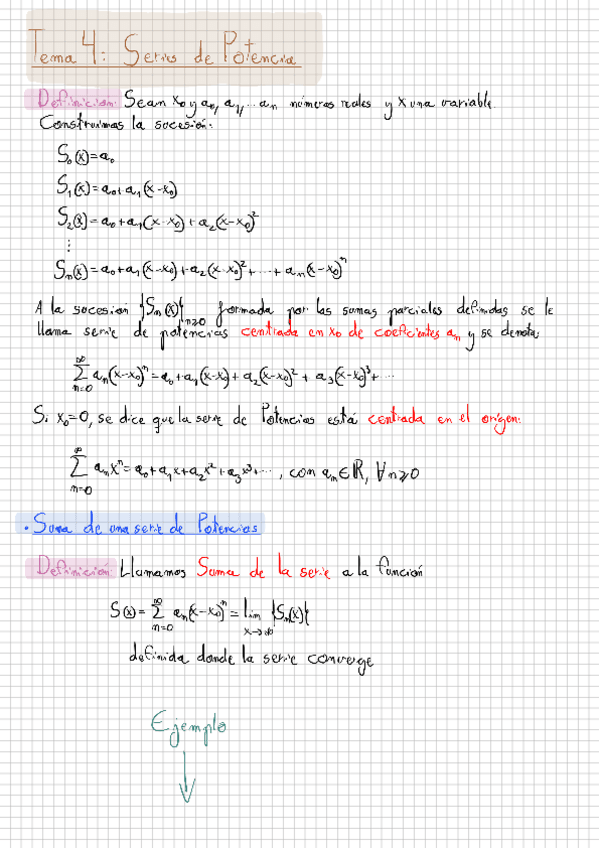 Tema 4: Series de Potencia
Definición: Sean x₀ y a₀, a₁, ... aₙ números reales y x una variable.
Construimos la sucesión:
S₀(x)=a₀
S₁(x)=a₀+a₁(x-x₀)
S₂(x)=a₀+a₁(x-x₀)+a₂(x-x₀)²
⋮
Sₙ(x)=a₀+a₁(x-x₀)+a₂(x-x₀)²+...+aₙ(x-x₀)ⁿ
A la sucesión {Sₙ(x)}ₙ≥₀ formada por las sumas parciales definidas se le
llama serie de potencias centrada en x₀ de coeficientes aₙ y se denota:
∑_{n=0}^{∞} aₙ(x-x₀)ⁿ=a₀+a₁(x-x₀)+a₂(x-x₀)²+a₃(x-x₀)³+...
Si x₀=0, se dice que la serie de Potencias está centrada en el origen:
∑_{n=0}^{∞} aₙxⁿ=a₀+a₁x+a₂x²+a₃x³+..., con aₙ∈ℝ, ∀n≥0
• Suma de una serie de Potencias
Definición: Llamamos Suma de la serie a la función
S(x)=∑_{n=0}^{∞} aₙ(x-x₀)ⁿ=lim_{x→∞} {Sₙ(x)}
definida donde la serie converge
Ejemplo
↓